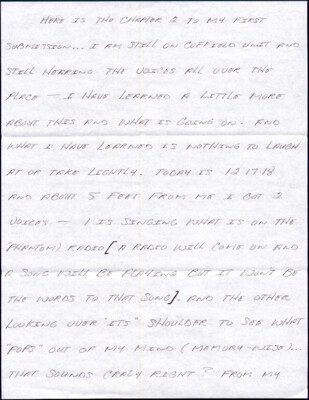 HERE IS THE CHAPTER 2 TO MY FIRST
SUBMISSION... I AM STILL ON COFFIELD UNIT AND
STILL HEARING THE VOICES ALL OVER THE
PLACE — I HAVE LEARNED A LITTLE MORE
ABOUT THIS AND WHAT IS GOING ON. AND
WHAT I HAVE LEARNED IS NOTHING TO LAUGH
AT OR TAKE LIGHTLY. TODAY IS 12-17-18
AND ABOUT 5 FEET FROM ME I BUT 2
VOICES — 1 IS SINGING WHAT IS ON THE
PHANTOM) RADIO [A RADIO WILL COME ON AND
A SONG WILL BE PLAYING BUT IT WON'T BE
THE WORDS TO THAT SONG]. AND THE OTHER
LOOKING OVER "ITS" SHOULDER TO SEE WHAT
"POPS" OUT OF MY MIND (MEMORY-WISE)...
THAT SOUNDS CRAZY RIGHT? FROM MY